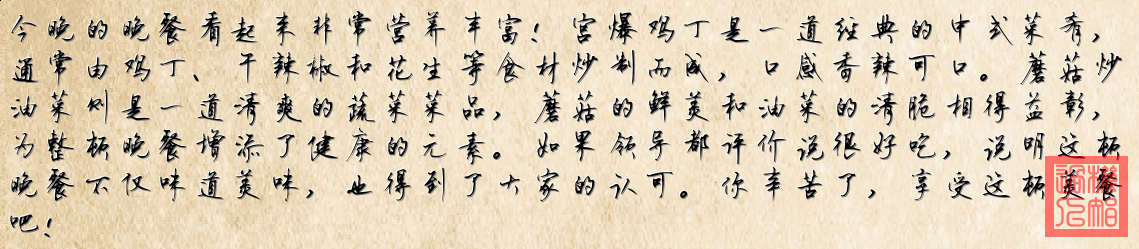 今晚的晚餐看起来非常营养丰富！宫爆鸡丁是一道经典的中式菜肴，
通常由鸡丁、干辣椒和花生等食材炒制而成，口感香辣可口。蘑菇炒
油菜则是一道清爽的蔬菜菜品，蘑菇的鲜美和油菜的清脆相得益彰，
为整顿晚餐增添了健康的元素。如果领导都评价说很好吃，说明这顿
晚餐不仅味道美味，也得到了大家的认可。你辛苦了，享受这顿美餐
吧！